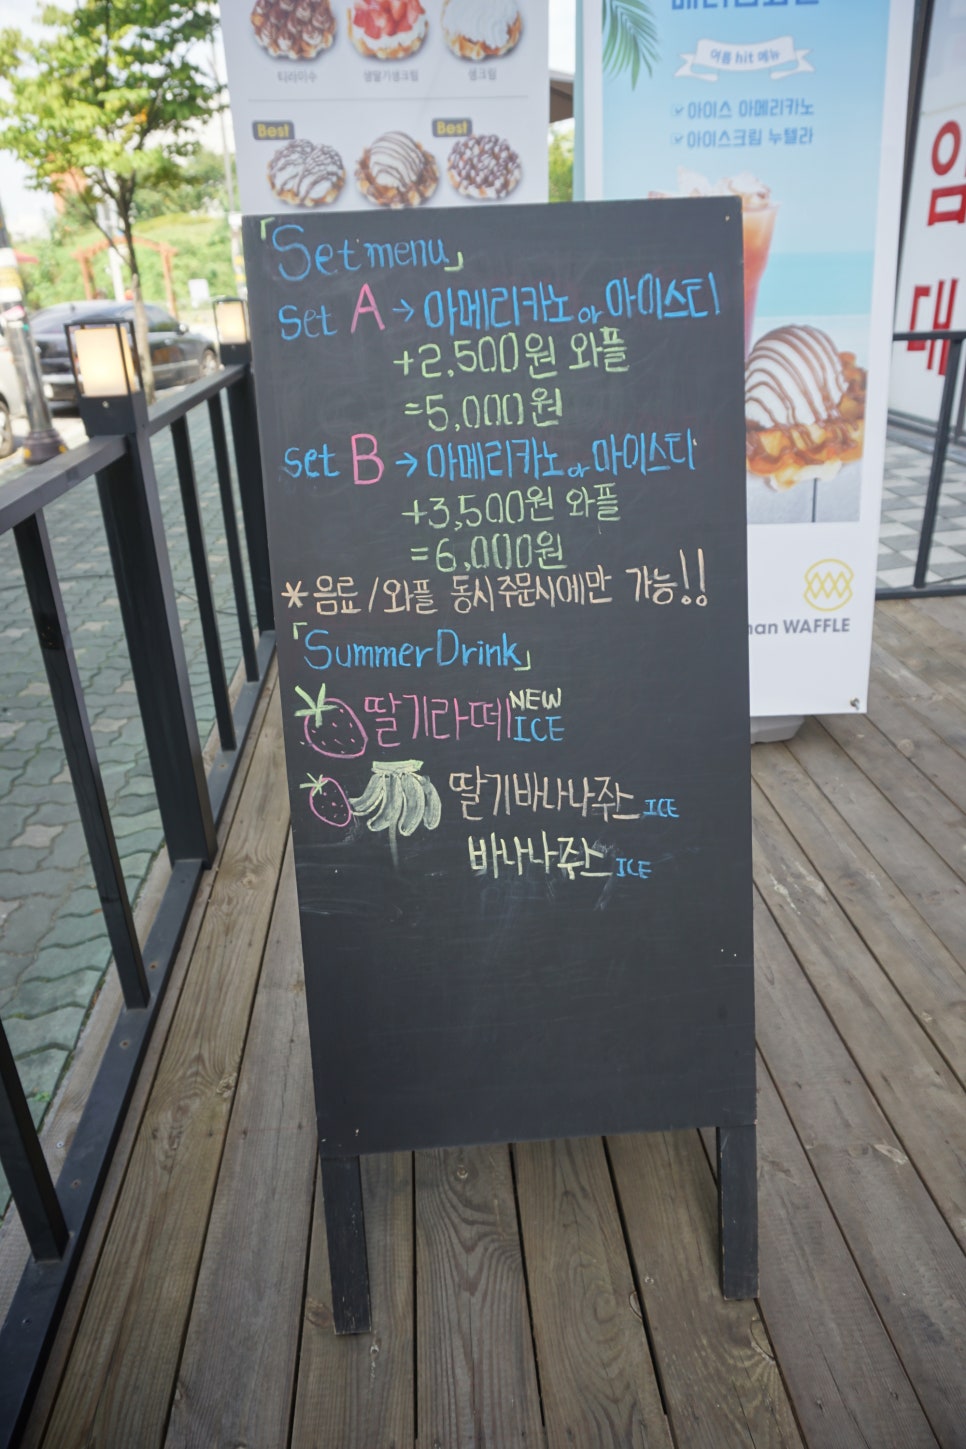 티라미수 생딸기생크림 생크림
Best Best
여름 hit 메뉴
아이스 아메리카노
아이스크림 누텔라
「Set menu」
set A → 아메리카노 or 아이스티
+2,500원 와플
=5,000원
set B → 아메리카노 or 아이스티
+3,500원 와플
=6,000원
*음료/와플 동시주문시에만 가능!!
「Summer Drink」
딸기라떼 NEW ICE
딸기바나나쥬스 ICE
바나나쥬스 ICE
WAFFLE
임
대